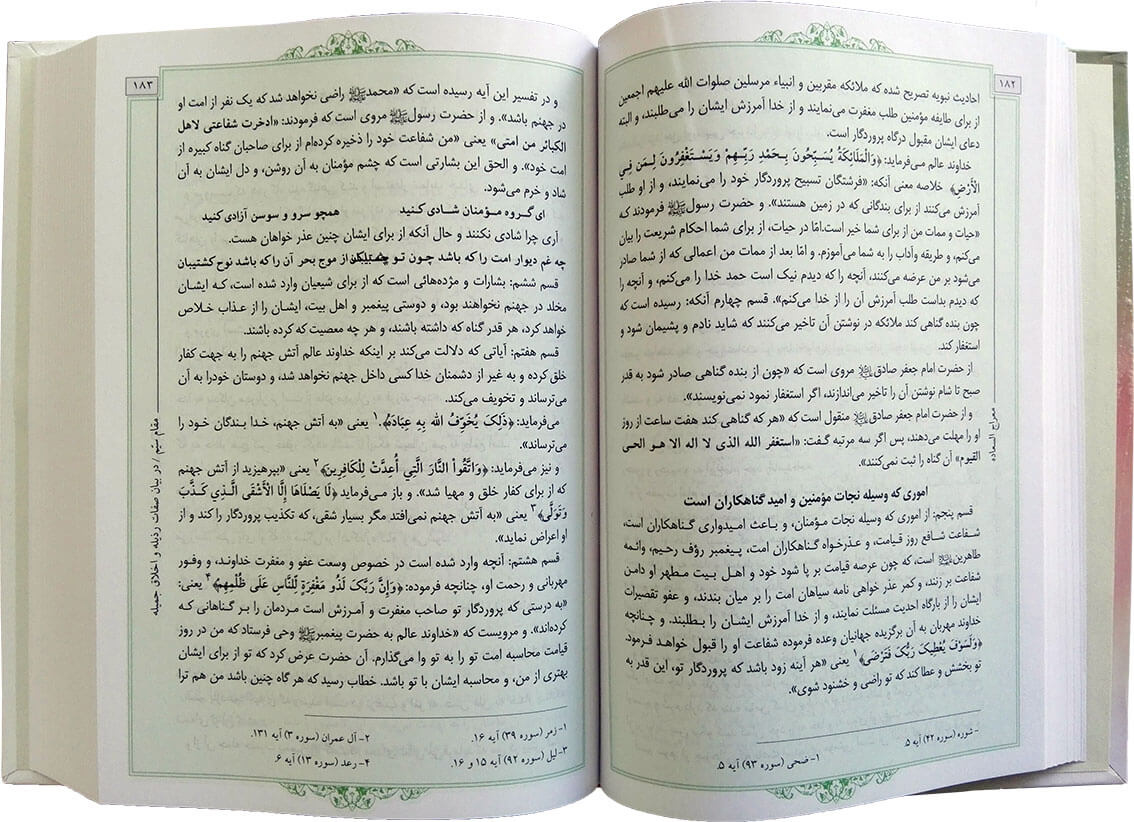 ۱۸۲
احادیث نبویه تصریح شده که ملائکه مقربین و انبیاء مرسلین صلوات الله علیهم اجمعین
از برای طایفه مؤمنین طلب مغفرت می‌نمایند و از خدا آمرزش ایشان را می‌طلبند، و البته
دعای ایشان مقبول درگاه پروردگار است.
خداوند عالم می‌فرماید: ﴿وَالْمَلَائِكَةُ يُسَبِّحُونَ بِحَمْدِ رَبِّهِمْ وَيَسْتَغْفِرُونَ لِمَن فِي
الْأَرْضِ﴾ خلاصه معنی آنکه: «فرشتگان تسبیح پروردگار خود را می‌نمایند، و از او طلب
آمرزش می‌کنند از برای بندگانی که در زمین هستند». و حضرت رسولﷺ فرمودند که
«حیات و ممات من از برای شما خیر است. امّا در حیات، از برای شما احکام شریعت را بیان
می‌کنم، و طریقه وآداب را به شما می‌آموزم. و امّا بعد از ممات من اعمالی که از شما صادر
می‌شود بر من عرضه می‌کنند، آنچه را که دیدم نیک است حمد خدا را می‌کنم، و آنچه را
که دیدم بداست طلب آمرزش آن را از خدا می‌کنم». قسم چهارم آنکه: رسیده است که
چون بنده گناهی کند ملائکه در نوشتن آن تاخیر می‌کنند که شاید نادم و پشیمان شود و
استغفار کند.
از حضرت امام جعفر صادق مروی است که «چون از بنده گناهی صادر شود به قدر
صبح تا شام نوشتن آن را تاخیر می‌اندازند، اگر استغفار نمود نمی‌نویسند».
و از حضرت امام جعفر صادق منقول است که «هر که گناهی کند هفت ساعت از روز
او را مهلت می‌دهند، پس اگر سه مرتبه گفت: «استغفر الله الذی لا اله الا هو الحی
القیوم» آن گناه را ثبت نمی‌کنند».
اموری که وسیله نجات مؤمنین و امید گناهکاران است
قسم پنجم: از اموری که وسیله نجات مؤمنان، و باعث امیدواری گناهکاران است،
شفاعت شافع روز قیامت، و عذرخواه گناهکاران امت، پیغمبر رؤف رحیم، وائمه
طاهرین است، که چون عرصه قیامت بر پا شود خود و اهل بیت مطهر او دامن
شفاعت بر زنند، و کمر عذر خواهی نامه سیاهان امت را بر میان بندند، و عفو تقصیرات
ایشان را از بارگاه احدیت مسئلت نمایند، و از خدا آمرزش ایشان را بطلبند. و چنانچه
خداوند مهربان به آن برگزیده جهانیان وعده فرموده شفاعت او را قبول خواهد فرمود.
﴿وَلَسَوْفَ يُعْطِيكَ رَبُّكَ فَتَرْضَى﴾۱ یعنی «هر آینه زود باشد که پروردگار تو، این قدر به
تو بخشش و عطا کند که تو راضی و خشنود شوی».
- شوره (سوره ۴۲) آیه ۵.
۱- ضحی (سوره ۹۳) آیه ۵.
معراج السعاده
۱۸۳
و در تفسیر این آیه رسیده است که «محمدﷺ راضی نخواهد شد که یک نفر از امت او
در جهنم باشد». و از حضرت رسولﷺ مروی است که فرمودند: «ادخرت شفاعتی لاهل
الکبائر من امتی» یعنی «من شفاعت خود را ذخیره کرده‌ام از برای صاحبان گناه کبیره از
امت خود». و الحق این بشارتی است که چشم مؤمنان به آن روشن، و دل ایشان به آن
شاد و خرم می‌شود.
ای گروه مؤمنان شادی کنید همچو سرو و سوسن آزادی کنید
آری چرا شادی نکنند و حال آنکه از برای ایشان چنین عذر خواهان هست.
چه غم دیوار امت را که باشد چون تو از موج بحر آن را که باشد نوح کشتیبان
قسم ششم: بشارات و مژده‌هائی است که از برای شیعیان وارد شده است، که ایشان
مخلد در جهنم نخواهند بود، و دوستی پیغمبر و اهل بیت، ایشان را از عذاب خلاص
خواهد کرد، هر قدر گناه که داشته باشند، و هر چه معصیت که کرده باشند.
قسم هفتم: آیاتی که دلالت می‌کند بر اینکه خداوند عالم آتش جهنم را به جهت کفار
خلق کرده و به غیر از دشمنان خدا کسی داخل جهنم نخواهد شد، و دوستان خودرا به آن
می‌ترساند و تخویف می‌کند.
می‌فرماید: ﴿ذَلِكَ يُخَوِّفُ الله بِهِ عِبَادَهُ﴾.۱ یعنی «به آتش جهنم، خدا بندگان خود را
می‌ترساند».
و نیز می‌فرماید: ﴿وَاتَّقُواْ النَّارَ الَّتِي أُعِدَّتْ لِلْكَافِرِينَ﴾۲ یعنی «بپرهیزید از آتش جهنم
که از برای کفار خلق و مهیا شد». و باز می‌فرماید ﴿لَا يَصْلَاهَا إِلَّا الْأَشْقَى الَّذِي كَذَّبَ
وَتَوَلَّى﴾۳ یعنی «به آتش جهنم نمی‌افتد مگر بسیار شقی، که تکذیب پروردگار را کند و از
او اعراض نماید».
قسم هشتم: آنچه وارد شده است در خصوص وسعت عفو و مغفرت خداوند، و وفور
مهربانی و رحمت او، چنانچه فرموده: ﴿وَإِنَّ رَبَّكَ لَذُو مَغْفِرَةٍ لِّلنَّاسِ عَلَى ظُلْمِهِمْ﴾۴ یعنی:
«به درستی که پروردگار تو صاحب مغفرت و آمرزش است مردمان را بر گناهانی که
کرده‌اند». و مرویست که «خداوند عالم به حضرت پیغمبرﷺ وحی فرستاد که من در روز
قیامت محاسبه امت تو را به تو وا می‌گذارم. آن حضرت عرض کرد که تو از برای ایشان
بهتری از من، و محاسبه ایشان با تو باشد. خطاب رسید که هر گاه چنین باشد من هم ترا
۱- زمر (سوره ۳۹) آیه ۱۶. ۲- آل عمران (سوره ۳) آیه ۱۳۱.
۳- لیل (سوره ۹۲) آیه ۱۵ و ۱۶. ۴- رعد (سوره ۱۳) آیه ۶.
مقام سیّم / در بیان صفات رذیله و اخلاق جمیله